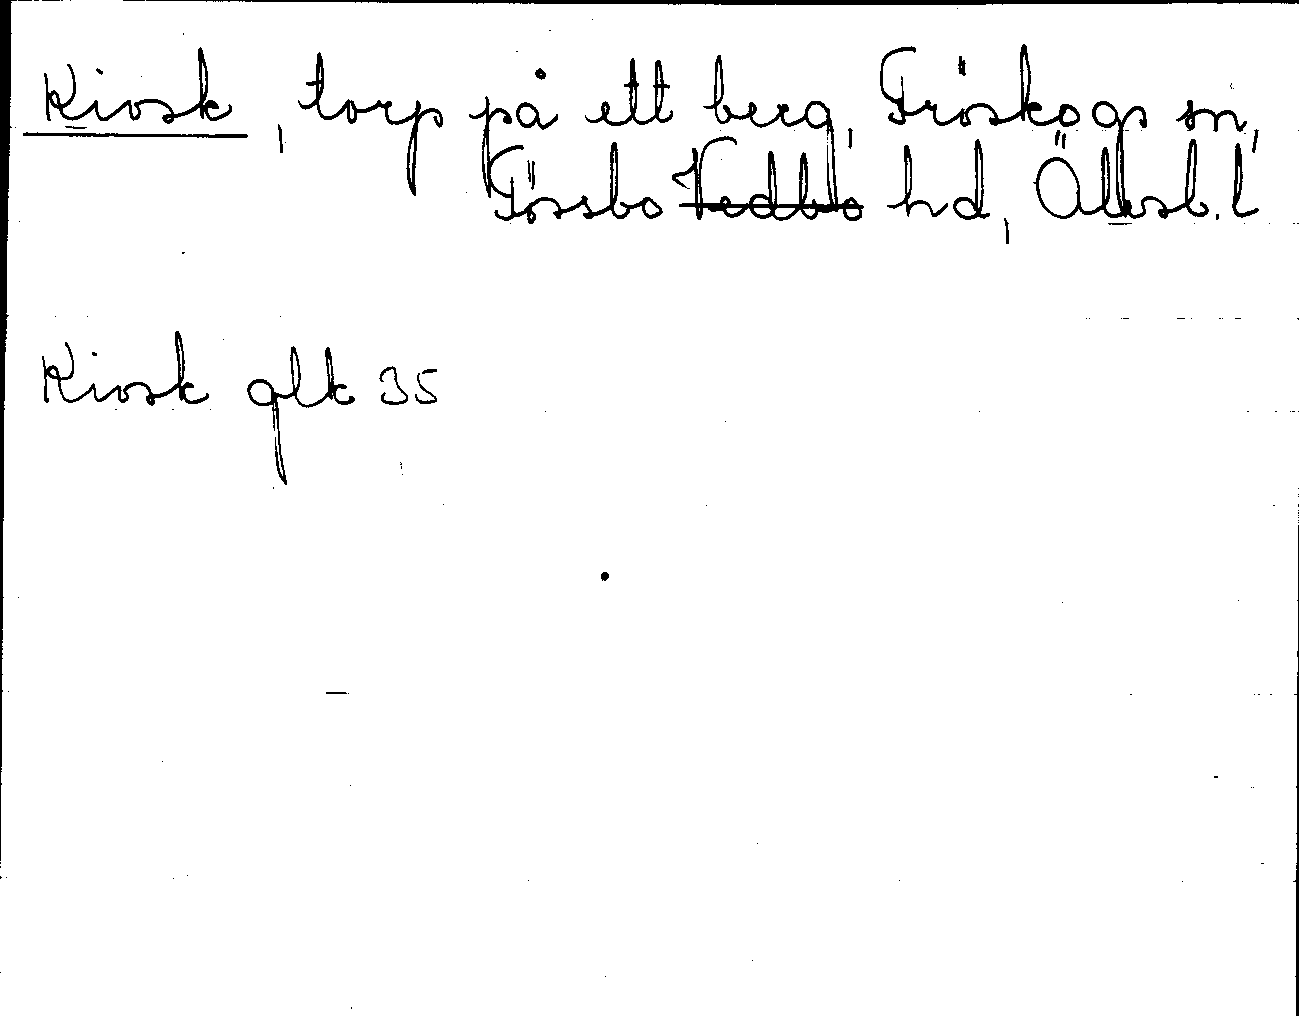 Kiosk, torp på ett berg, Fröskogs sn,
Tössbo Vedbo hd, Älvsb. l
Kiosk glk 35